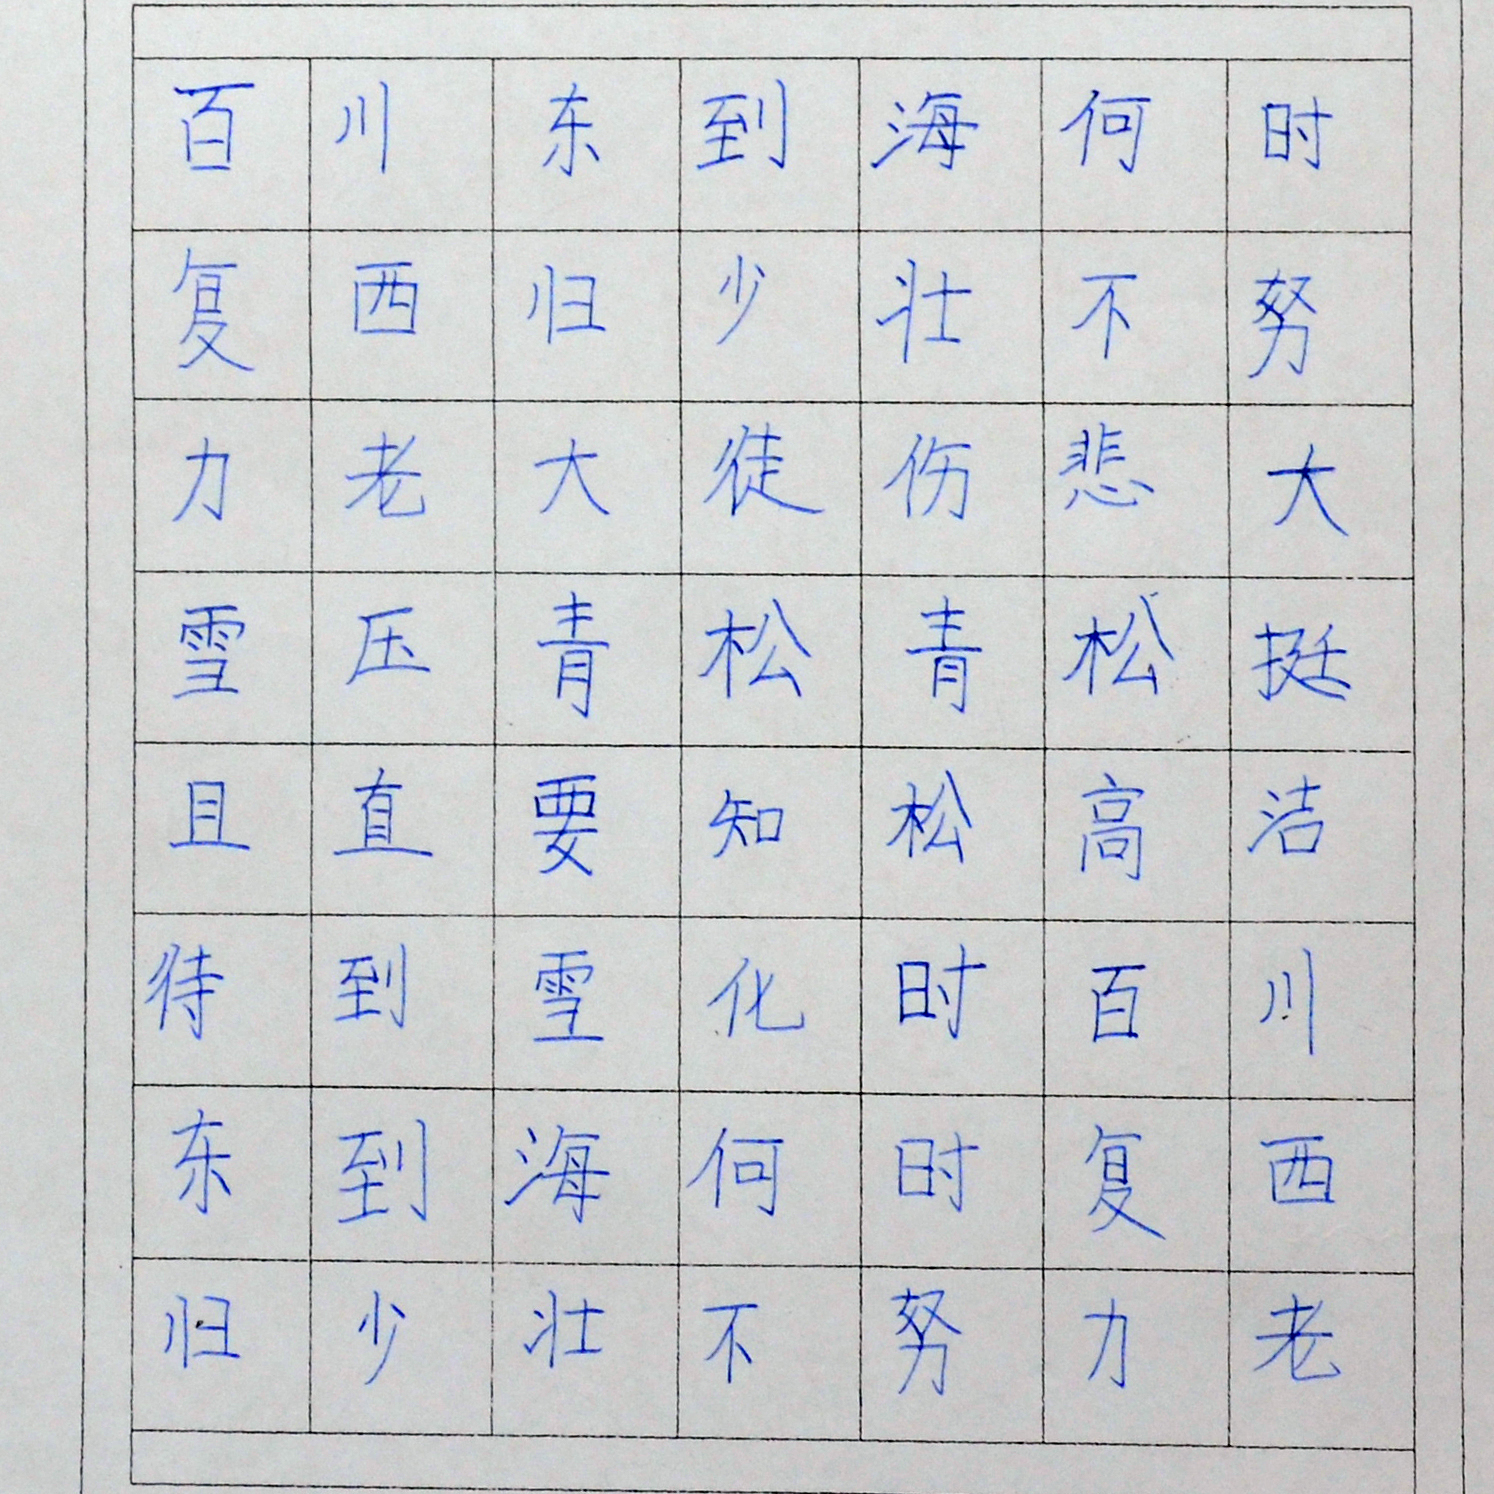 百川东到海何时
复西归少壮不努
力老大徒伤悲大
雪压青松青松挺
且直要知松高洁
待到雪化时百川
东到海何时复西
归少壮不努力老